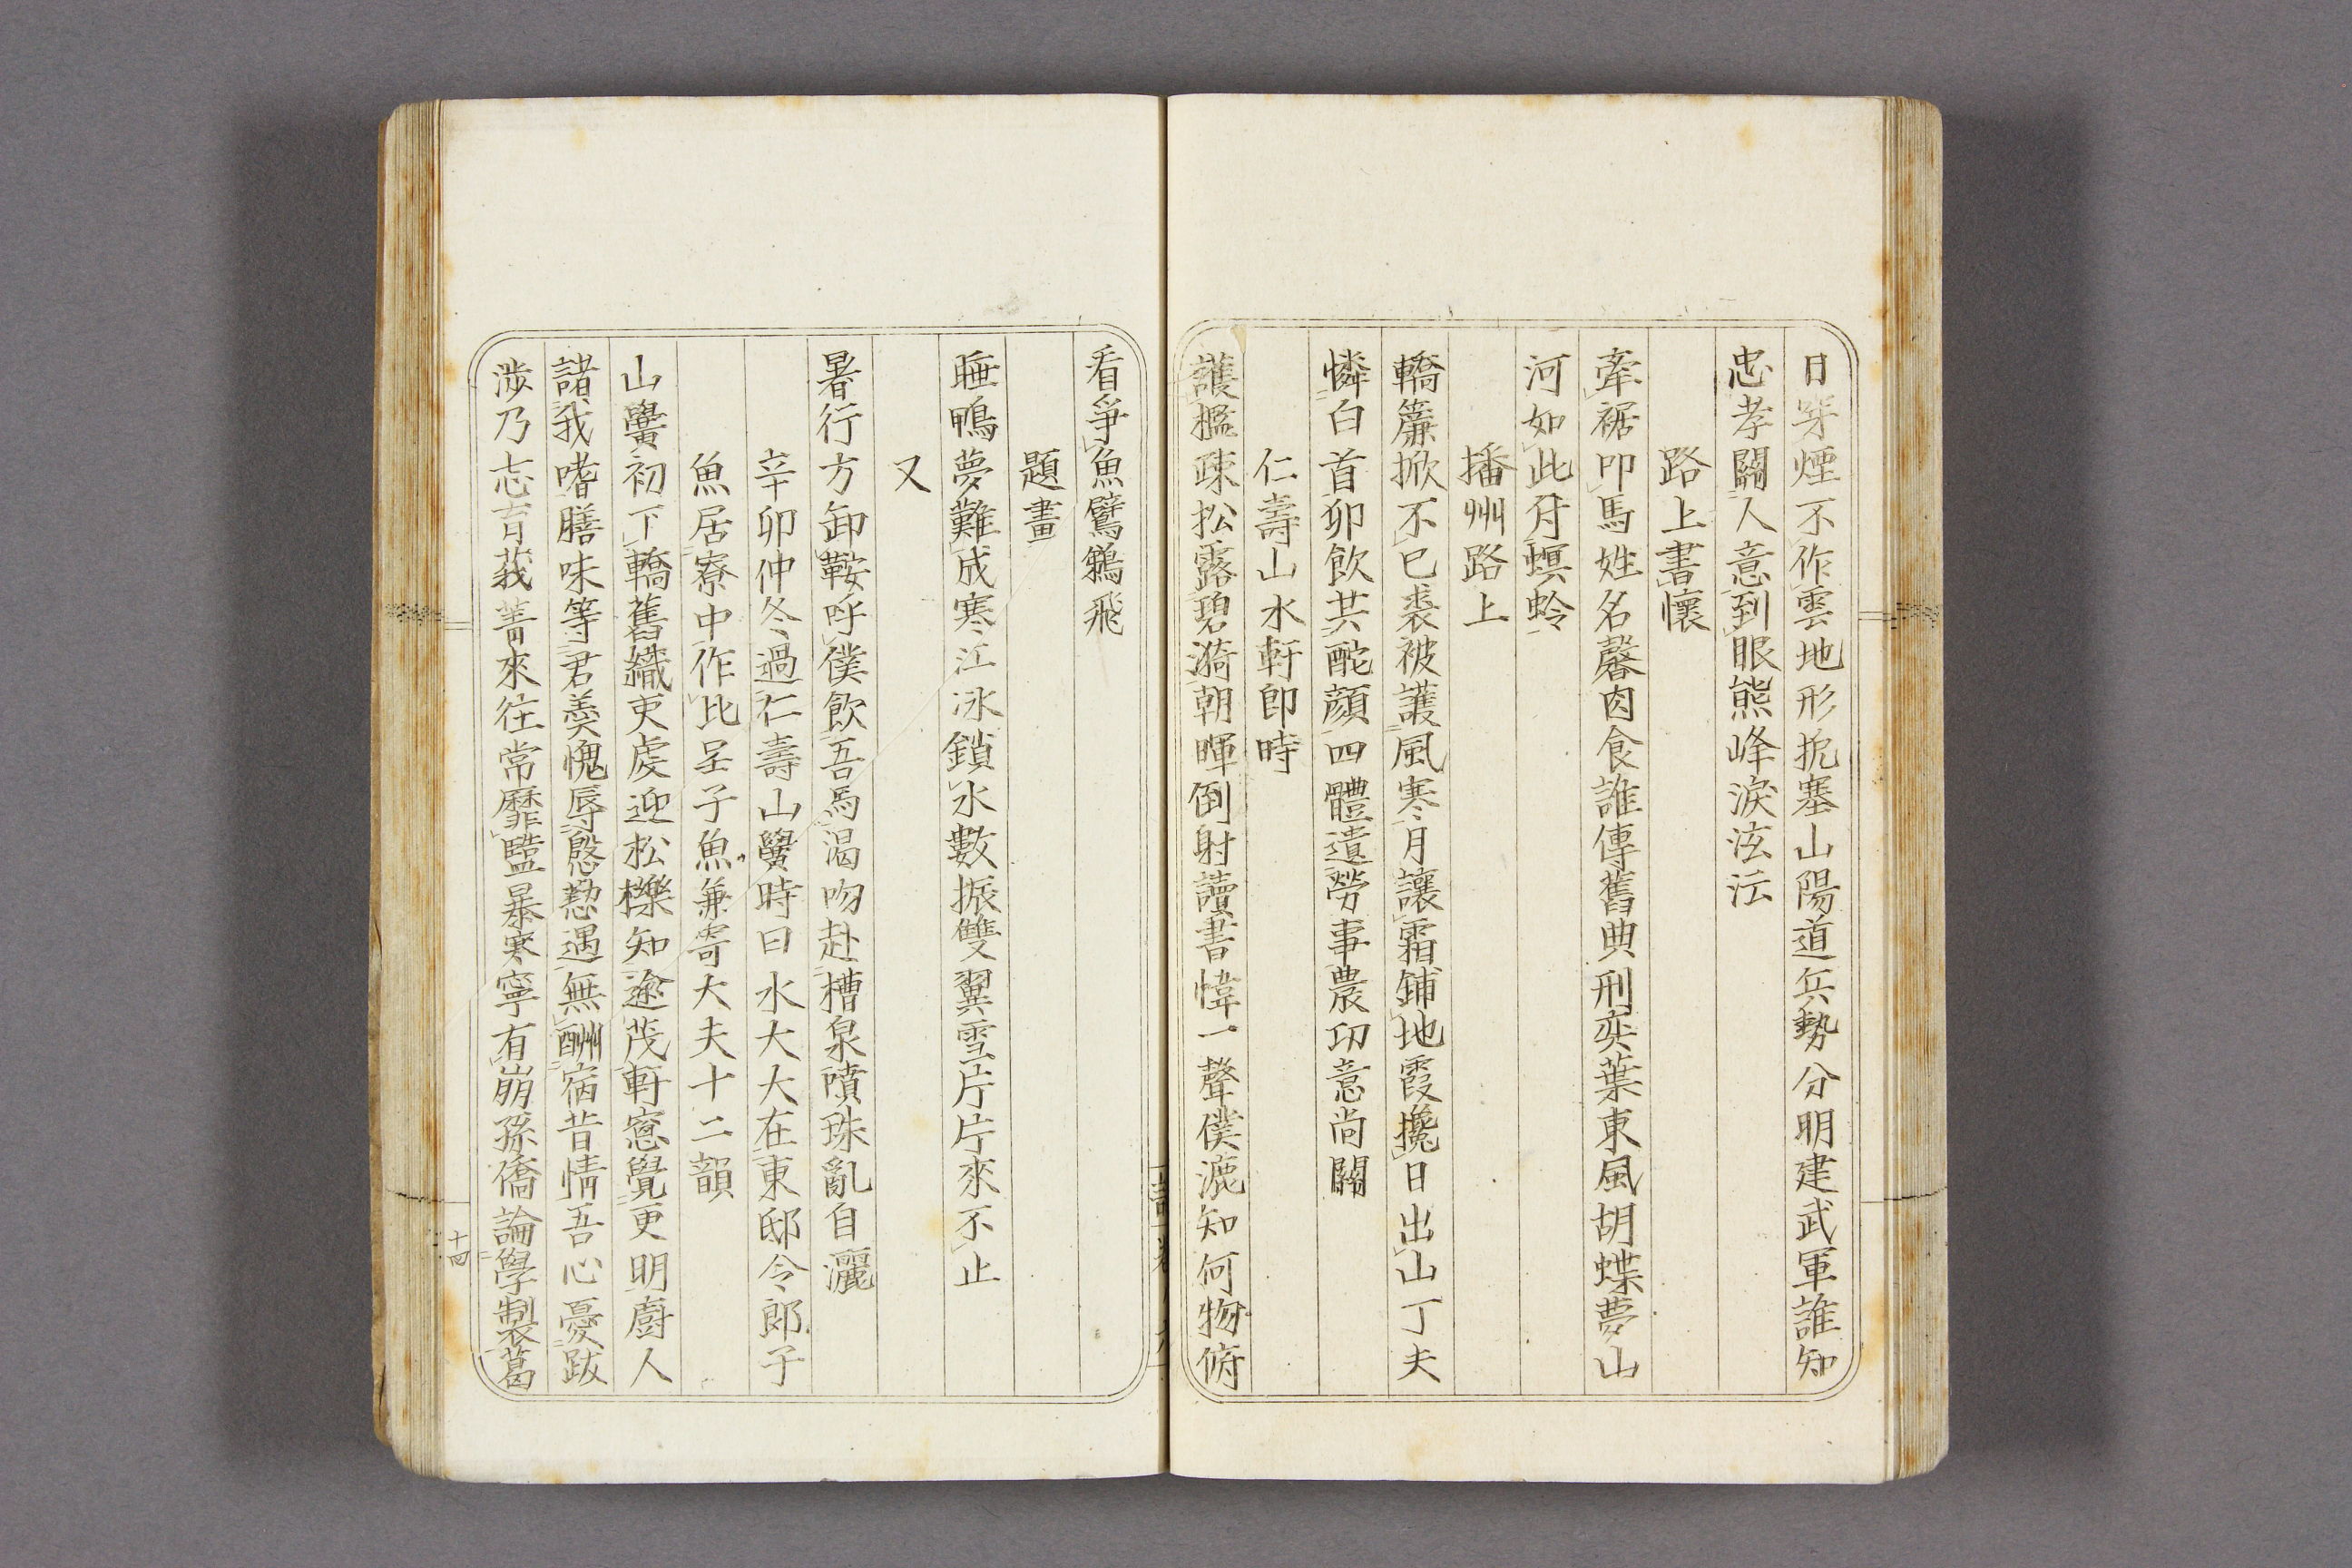 日穿煙不作雲地形扼塞山陽道兵勢分明建武軍誰知
忠孝關人意到眼熊峰淚泫沄
路上書懷
牽裾叩馬姓名馨肉食誰傳舊典刑奕葉東風胡蝶夢山
河如此付螟蛉
播州路上
轎簾掀不已裘被護風寒月讓霜鋪地霞攙日出山丁夫
憐白首卯飲共酡顏四體遺勞事農功意尚關
仁壽山水軒即時
護檻疎松露碧漪朝暉倒射讀書幃一聲僕漉知何物俯
看爭魚鷿鵜飛
題畫
睡鴨夢難成寒江冰鎖水數振雙翼雪片片來不止
又
暑行方卸鞍呼僕飲吾馬渴吻赴槽泉噴珠亂自灑
辛卯仲冬過仁壽山黌時曰水大大在東邸令郎子
魚居寮中作比呈子魚兼寄大夫十二韻
山黌初下轎舊織吏處迎松櫟知途茂軒窓覺更明廚人
諸我嗜膳味等君羹愧辱慇懃遇無酬宿昔情吾心憂跋
涉乃志育莪菁來往常靡盬暴寒寧有崩孫僑論學製葛
十四